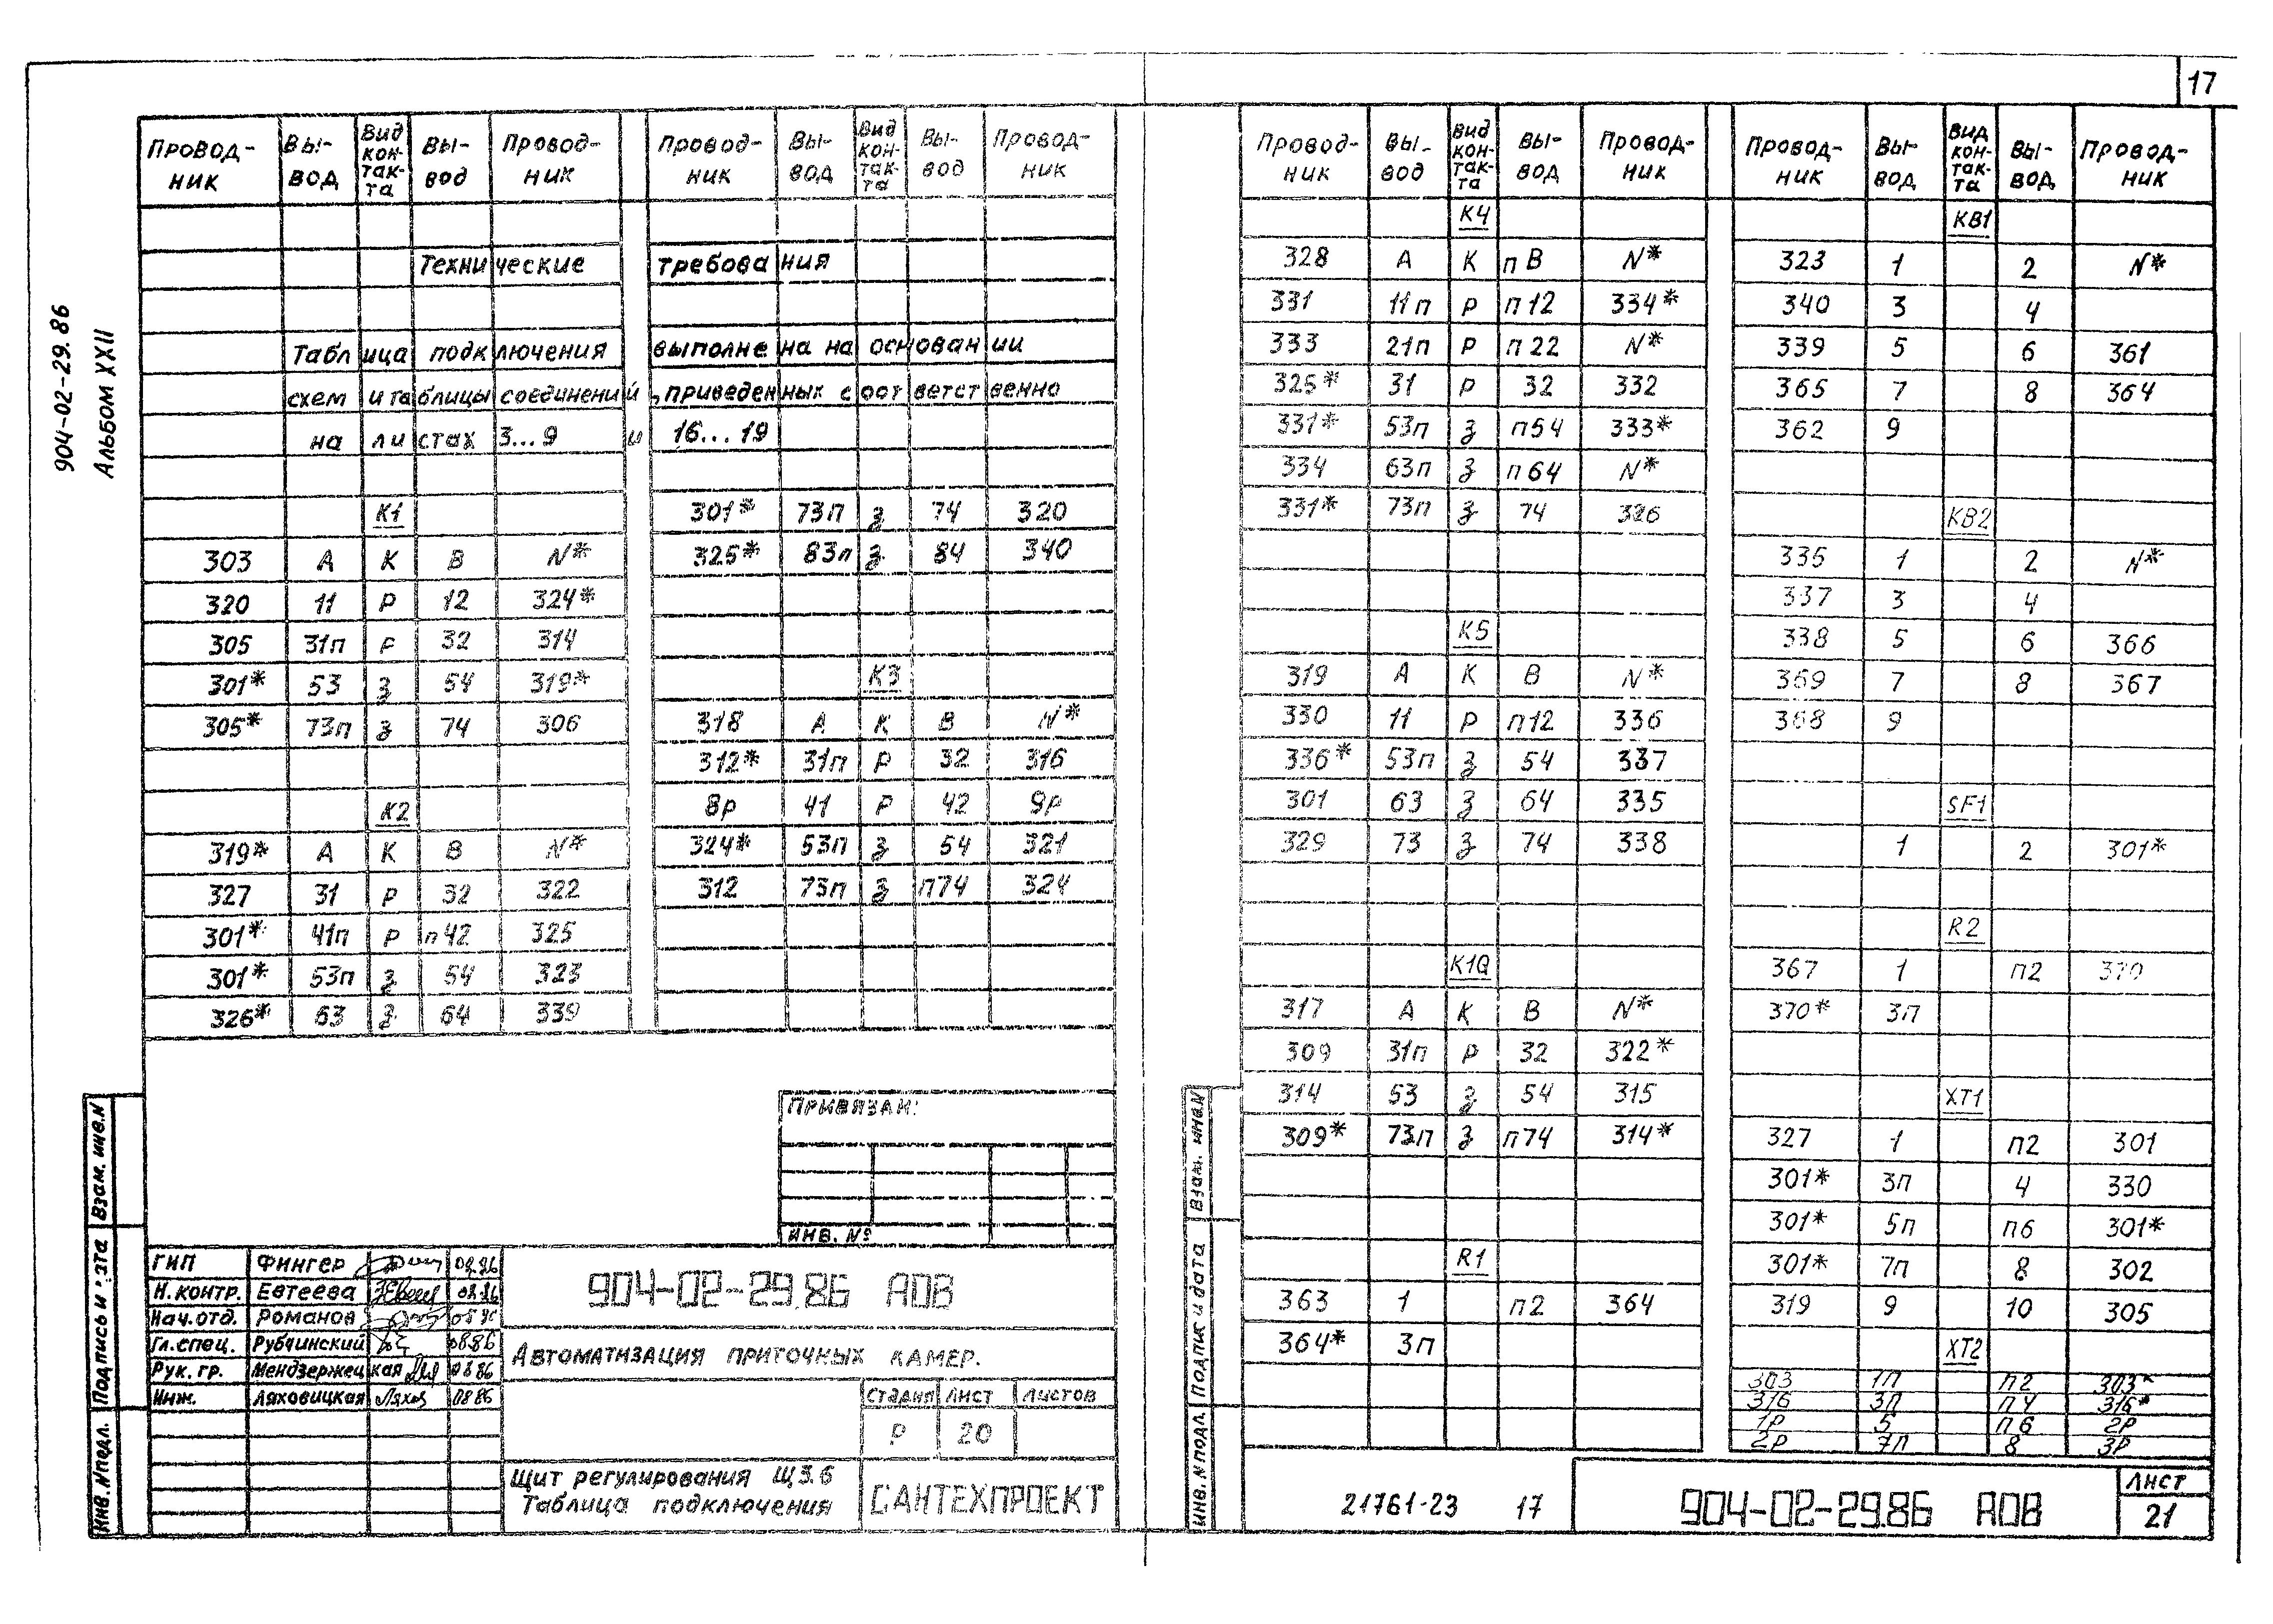 17
904-02-29.86
Альбом XXII
Провод-ник Вы-вод Вид кон-так-та Вы-вод Провод-ник
Технические требования
Таблица подключения выполнена на основании
схем и таблицы соединений, приведенных соответственно
на листах 3...9 и 16...19
K1
303 А К В N*
320 11 Р 12 324*
305 31п Р 32 314
301* 53 З 54 319*
305* 73п З 74 306
K2
319* А К В N*
327 31 Р 32 322
301* 41п Р п42 325
301* 53п З 54 323
326* 63 З 64 339
Провод-ник Вы-вод Вид кон-так-та Вы-вод Провод-ник
301* 73п З 74 320
325* 83п З 84 340
K3
318 А К В N*
312* 31п Р 32 316
8р 41 Р 42 9р
324* 53п З 54 321
312 73п З п74 324
Привязан:
Инв. №
ГИП Фингер 08.86
Н.контр. Евтеева 08.86
Нач.отд. Романов
Гл.спец. Рубчинский 08.86
Рук. гр. Мендзержецкая 08.86
Инж. Ляховицкая Ляхов 08.86
904-02-29.86 АОВ
Автоматизация приточных камер.
Стадия Лист Листов
Р 20
Щит регулирования Щ3.6
Таблица подключения
САНТЕХПРОЕКТ
Инв. N подл. Подпись и дата Взам. инв. N
Провод-ник Вы-вод Вид кон-так-та Вы-вод Провод-ник
K4
328 А К пВ N*
331 11п Р п12 334*
333 21п Р п22 N*
325* 31 Р 32 332
331* 53п З п54 333*
334 63п З п64 N*
331* 73п З 74 326
K5
319 А К В N*
330 11 Р п12 336
336* 53п З 54 337
301 63 З 64 335
329 73 З 74 338
K10
317 А К В N*
309 31п Р 32 322*
314 53 З 54 315
309* 73п З п74 314*
R1
363 1 п2 364
364* 3п
Провод-ник Вы-вод Вид кон-так-та Вы-вод Провод-ник
KB1
323 1 2 N*
340 3 4
339 5 6 361
365 7 8 364
362 9
KB2
335 1 2 N*
337 3 4
338 5 6 366
369 7 8 367
368 9
SF1
1 2 301*
R2
367 1 п2 370
370* 3п
XT1
327 1 п2 301
301* 3п 4 330
301* 5п п6 301*
301* 7п 8 302
319 9 10 305
XT2
303 1п п2 303*
316 3п п4 316*
1р 5 п6 2р
2р 7п 8 3р
Инв. N подл. Подпись и дата Взам. инв. N
21761-23 17
904-02-29.86 АОВ
Лист
21